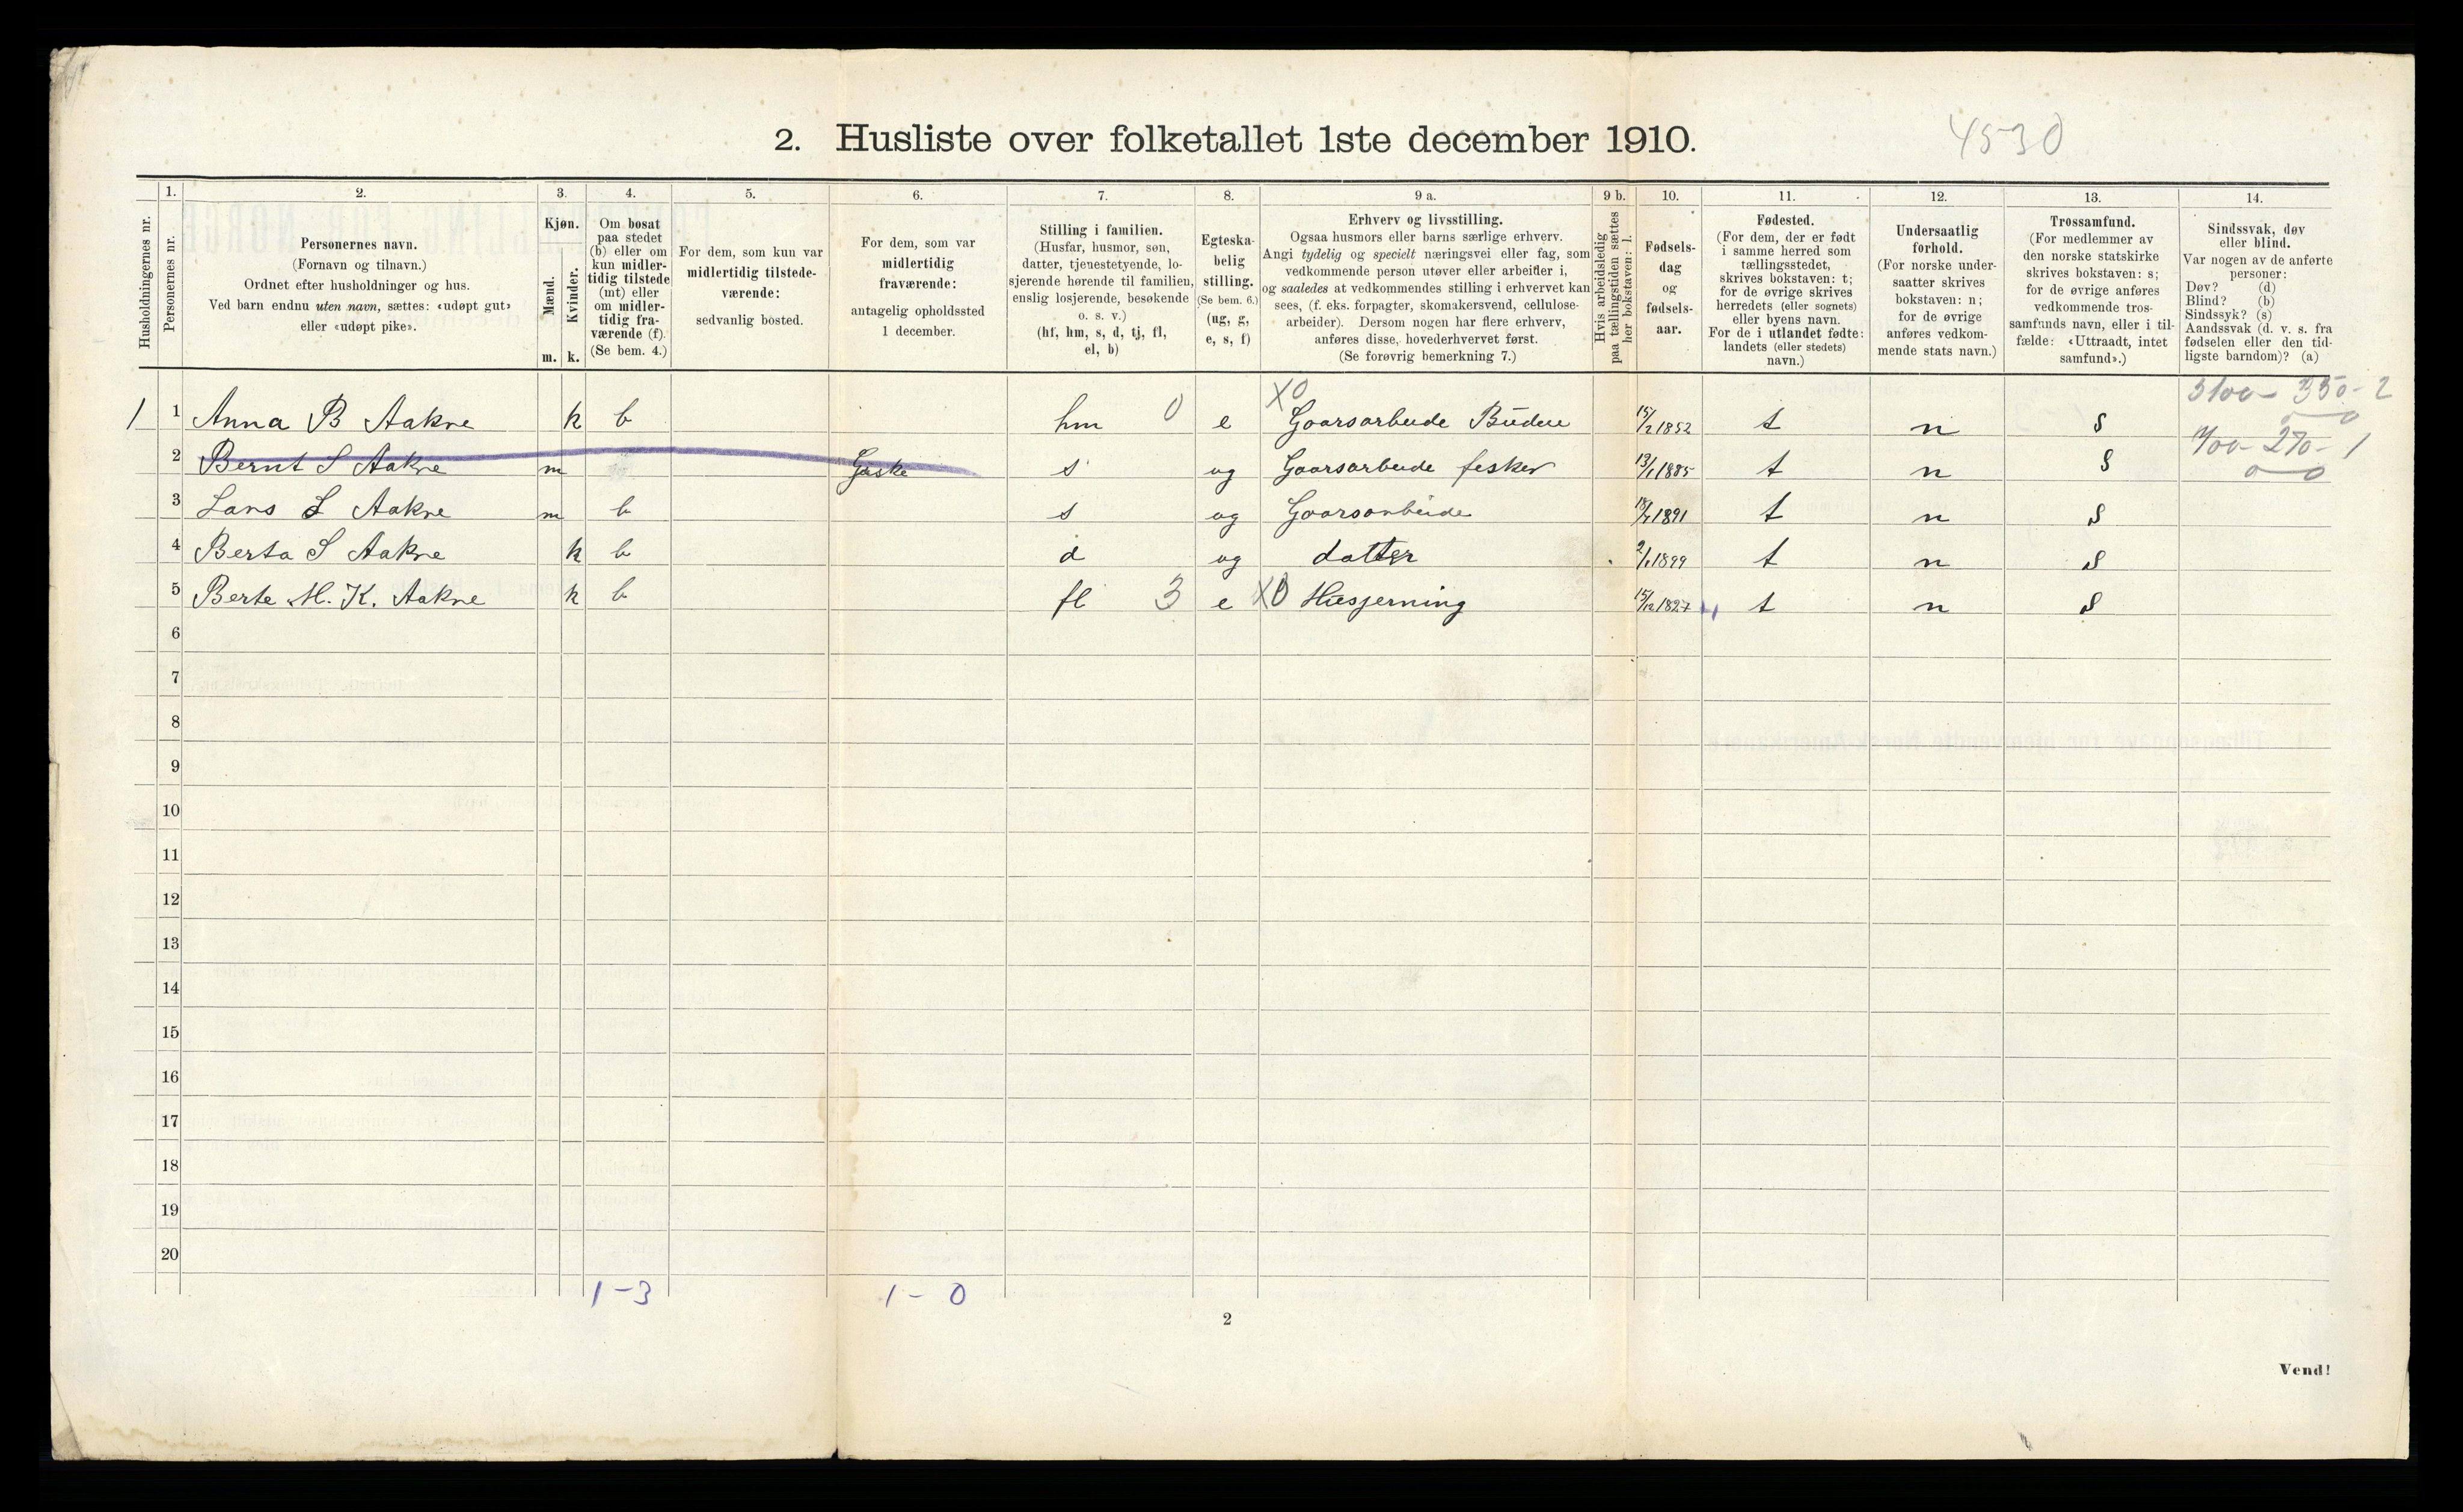 2. Husliste over folketallet 1ste december 1910.
4530
Husholdningernes nr.
1.
Personernes nr.
2.
Personernes navn.
(Fornavn og tilnavn.)
Ordnet efter husholdninger og hus.
Ved barn endnu uten navn, sættes: «udøpt gut»
eller «udøpt pike».
3.
Kjøn.
Mænd.
Kvinder.
m. k.
4.
Om bosat
paa stedet
(b) eller om
kun midler-
tidig tilstede
(mt) eller
om midler-
tidig fra-
værende (f).
(Se bem. 4.)
5.
For dem, som kun var
midlertidig tilstede-
værende:
sedvanlig bosted.
6.
For dem, som var
midlertidig
fraværende:
antagelig opholdssted
1 december.
7.
Stilling i familien.
(Husfar, husmor, søn,
datter, tjenestetyende, lo-
sjerende hørende til familien,
enslig losjerende, besøkende
o. s. v.)
(hf, hm, s, d, tj, fl,
el, b)
8.
Egteska-
belig
stilling.
(Se bem. 6.)
(ug, g,
e, s, f)
9 a.
Erhverv og livsstilling.
Ogsaa husmors eller barns særlige erhverv.
Angi tydelig og specielt næringsvei eller fag, som
vedkommende person utøver eller arbeider i,
og saaledes at vedkommendes stilling i erhvervet kan
sees, (f. eks. forpagter, skomakersvend, cellulose-
arbeider). Dersom nogen har flere erhverv,
anføres disse, hovederhvervet først.
(Se forøvrig bemerkning 7.)
9 b.
Hvis arbeidsledig
paa tællingstiden sættes
her bokstaven: l.
10.
Fødsels-
dag
og
fødsels-
aar.
11.
Fødested.
(For dem, der er født
i samme herred som
tællingsstedet,
skrives bokstaven: t;
for de øvrige skrives
herredets (eller sognets)
eller byens navn.
For de i utlandet fødte:
landets (eller stedets)
navn.)
12.
Undersaatlig
forhold.
(For norske under-
saatter skrives
bokstaven: n;
for de øvrige
anføres vedkom-
mende stats navn.)
13.
Trossamfund.
(For medlemmer av
den norske statskirke
skrives bokstaven: s;
for de øvrige anføres
vedkommende tros-
samfunds navn, eller i til-
fælde: «Uttraadt, intet
samfund».)
14.
Sindssvak, døv
eller blind.
Var nogen av de anførte
personer:
Døv? (d)
Blind? (b)
Sindssyk? (s)
Aandssvak (d. v. s. fra
fødselen eller den tid-
ligste barndom)? (a)
X0 350-2
1 1 Anna B Aakre k b hm 0 e Gaarsarbeide Büdeie 15/2 1852 t n s
270-1
2 Bernt S Aakre m Giske s ug Gaarsarbeide fesker 13/1 1885 t n s
3 Lars L Aakre m b s ug Gaarsarbeide 1891 t n s
4 Berta S Aakre k b d ug datter 2/1 1899 t n s
5 Berte M. K. Aakre k b fl 3 e X0 Husjerning 15/12 1827 t n s
6
7
8
9
10
11
12
13
14
15
16
17
18
19
20
1-3 1-0
2
Vend!